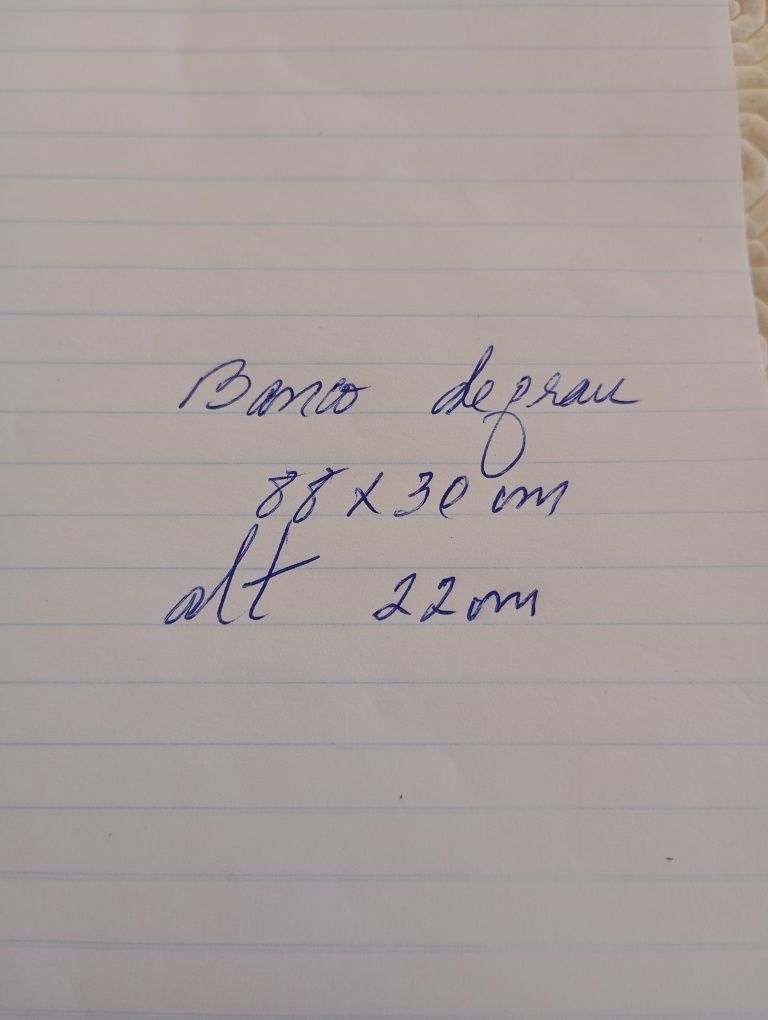 Banco degrau
88 x 30 cm
alt 22cm